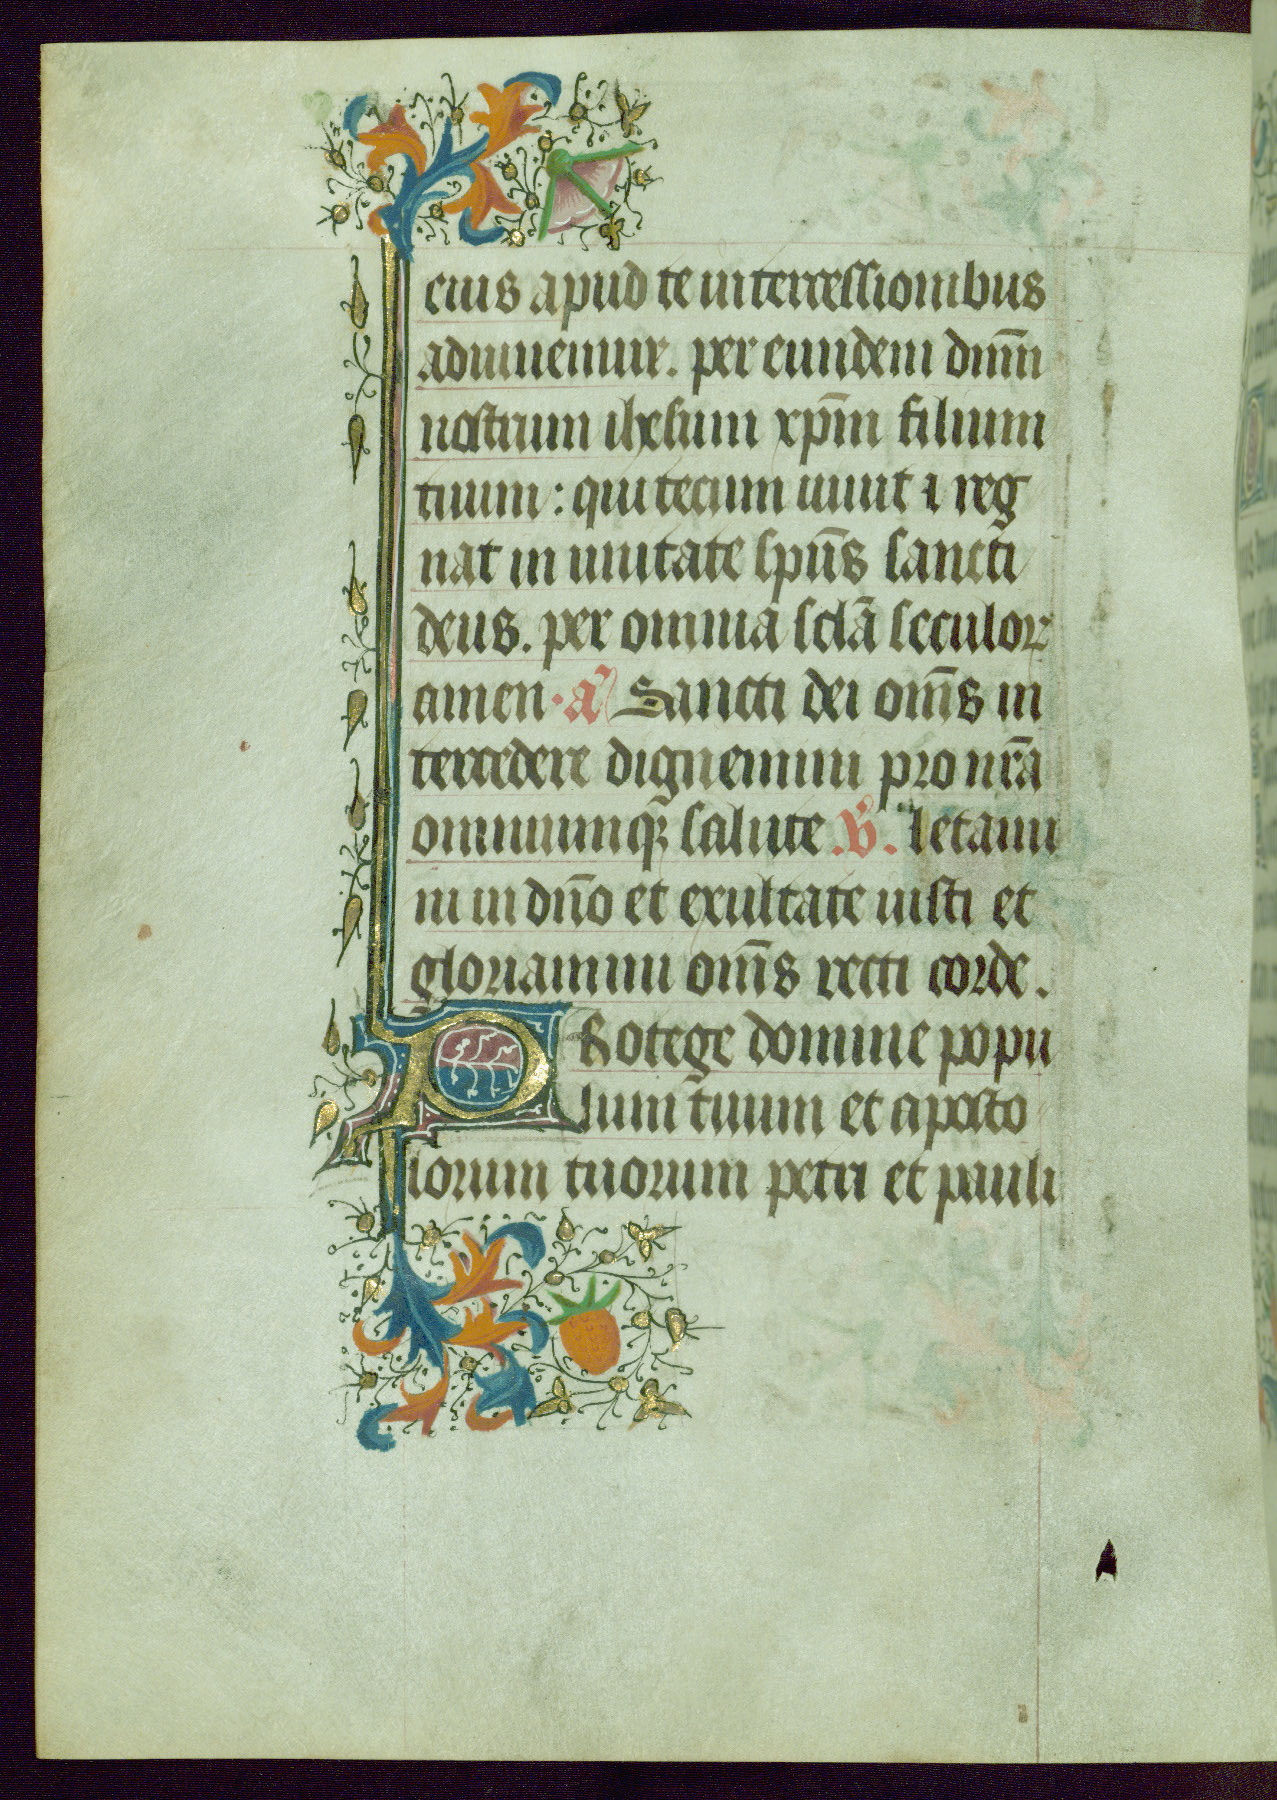 eius apud te intercessionibus
adiuuemur. per eundem dnm̄
nostrum ihesum xp̄m filium
tuum : qui tecum uiuit ⁊ reg
nat in unitate spūs sancti
deus. per omnia sclā seculoꝝ
amen. a Sancti dei om̄s in
tercedere dignemini pro nr̄a
omniumqꝫ salute .v̄. letami
ni in dn̄o et exultate iusti et
gloriamini om̄s recti corde.
PRotege domine popu
lum tuum et aposto
lorum tuorum petri et pauli